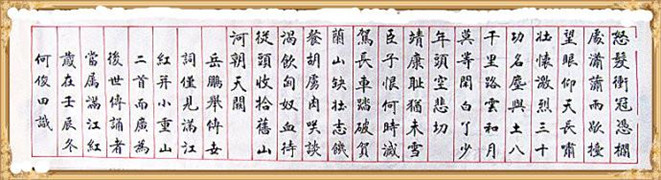 怒髮衝冠憑欄
處瀟瀟雨歇擡
望眼仰天長嘯
壯懷激烈三十
功名塵與土八
千里路雲和月
莫等閒白了少
年頭空悲切
靖康恥猶未雪
臣子恨何時滅
駕長車踏破賀
蘭山缺壯志饑
餐胡虜肉笑談
渴飲匈奴血待
從頭收拾舊山
河朝天闕
岳鵬舉傳世
詞僅見滿江
紅并小重山
二首而廣為
後世傳誦者
當屬滿江紅
歲在壬辰冬
何俊田識